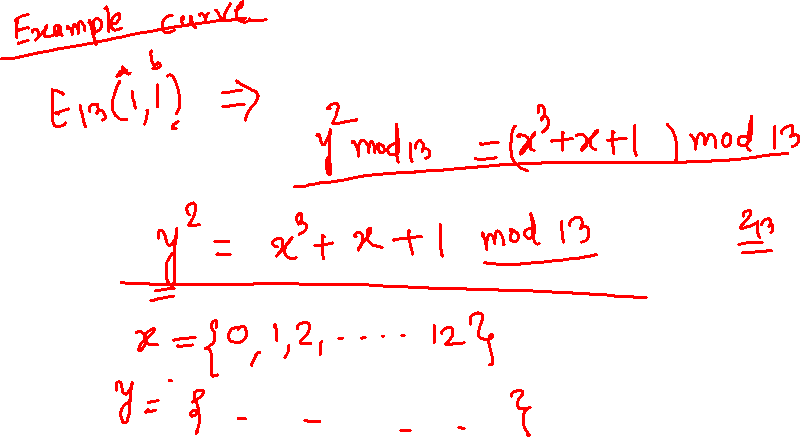 Example curve
a b
E13(1,1) ⇒
y² mod 13 = (x³+x+1) mod 13
y² = x³ + x + 1 mod 13 Z13
x = {0, 1, 2, ..... 12}
y = { - - - - }